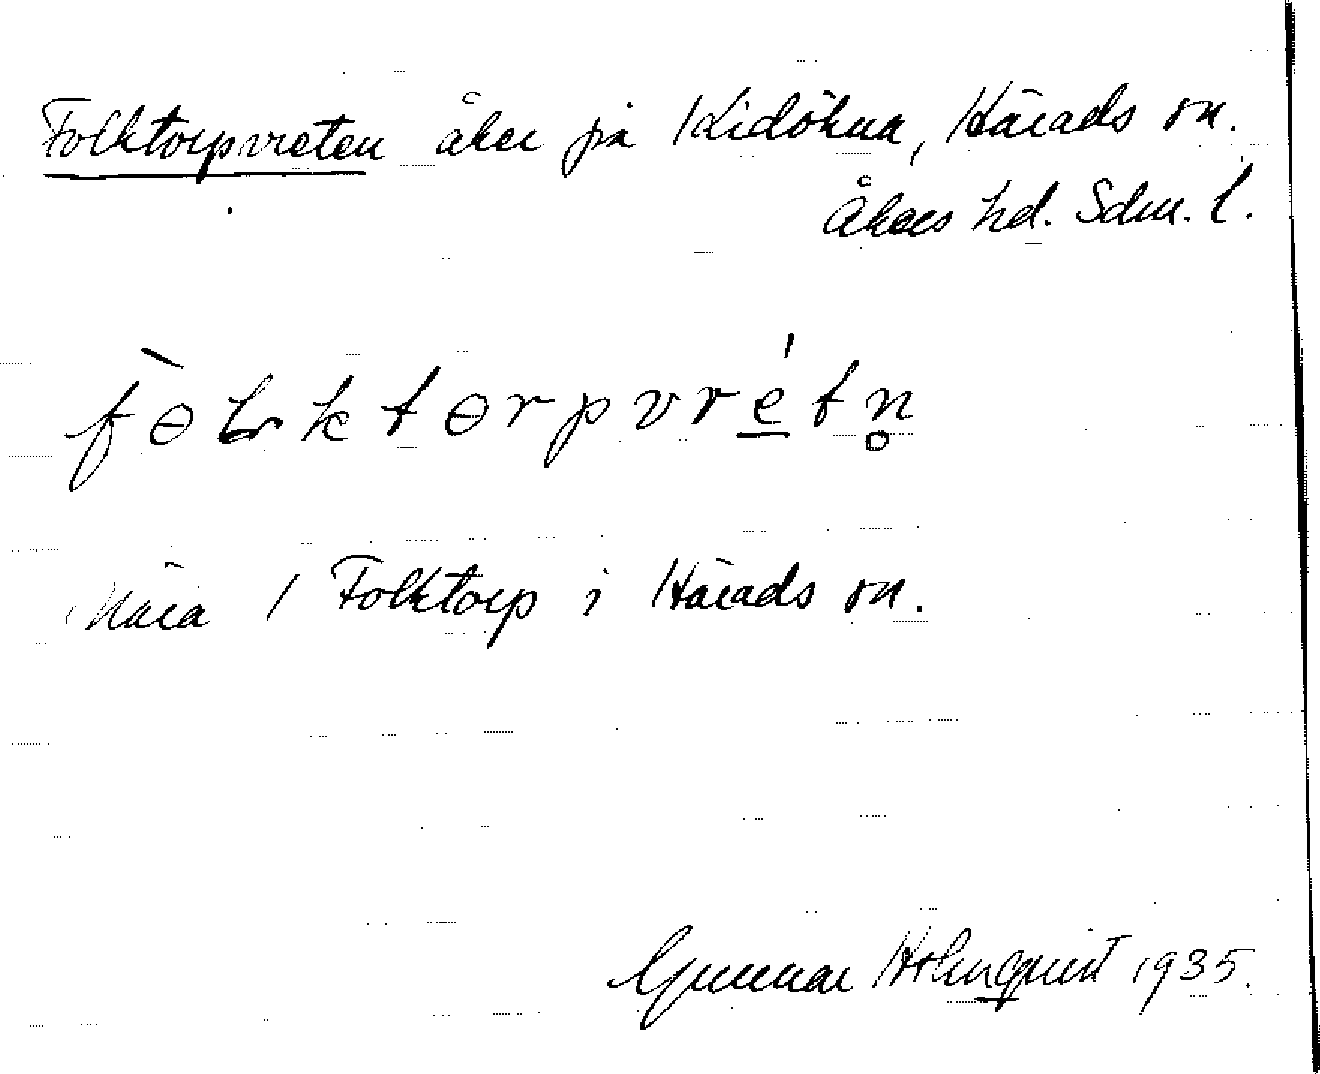 Folktorpvreten åker på Kidökna, Härads sn.
Åkers hd. Sdm. l.
fɵ̀lktɵrpvrétn̥
Nära / Folktorp i Härads sn.
Gunnar Holmquist 1935.